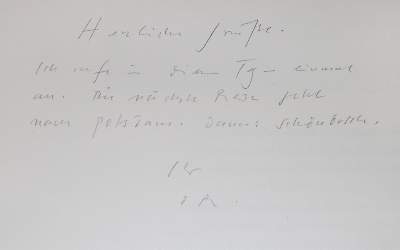 Herzliche Grüße.
Ich rufe in diesen Tagen einmal
an. Die nächste Reise geht
nach Potsdam. Dann: Schönbeck.
Ihr